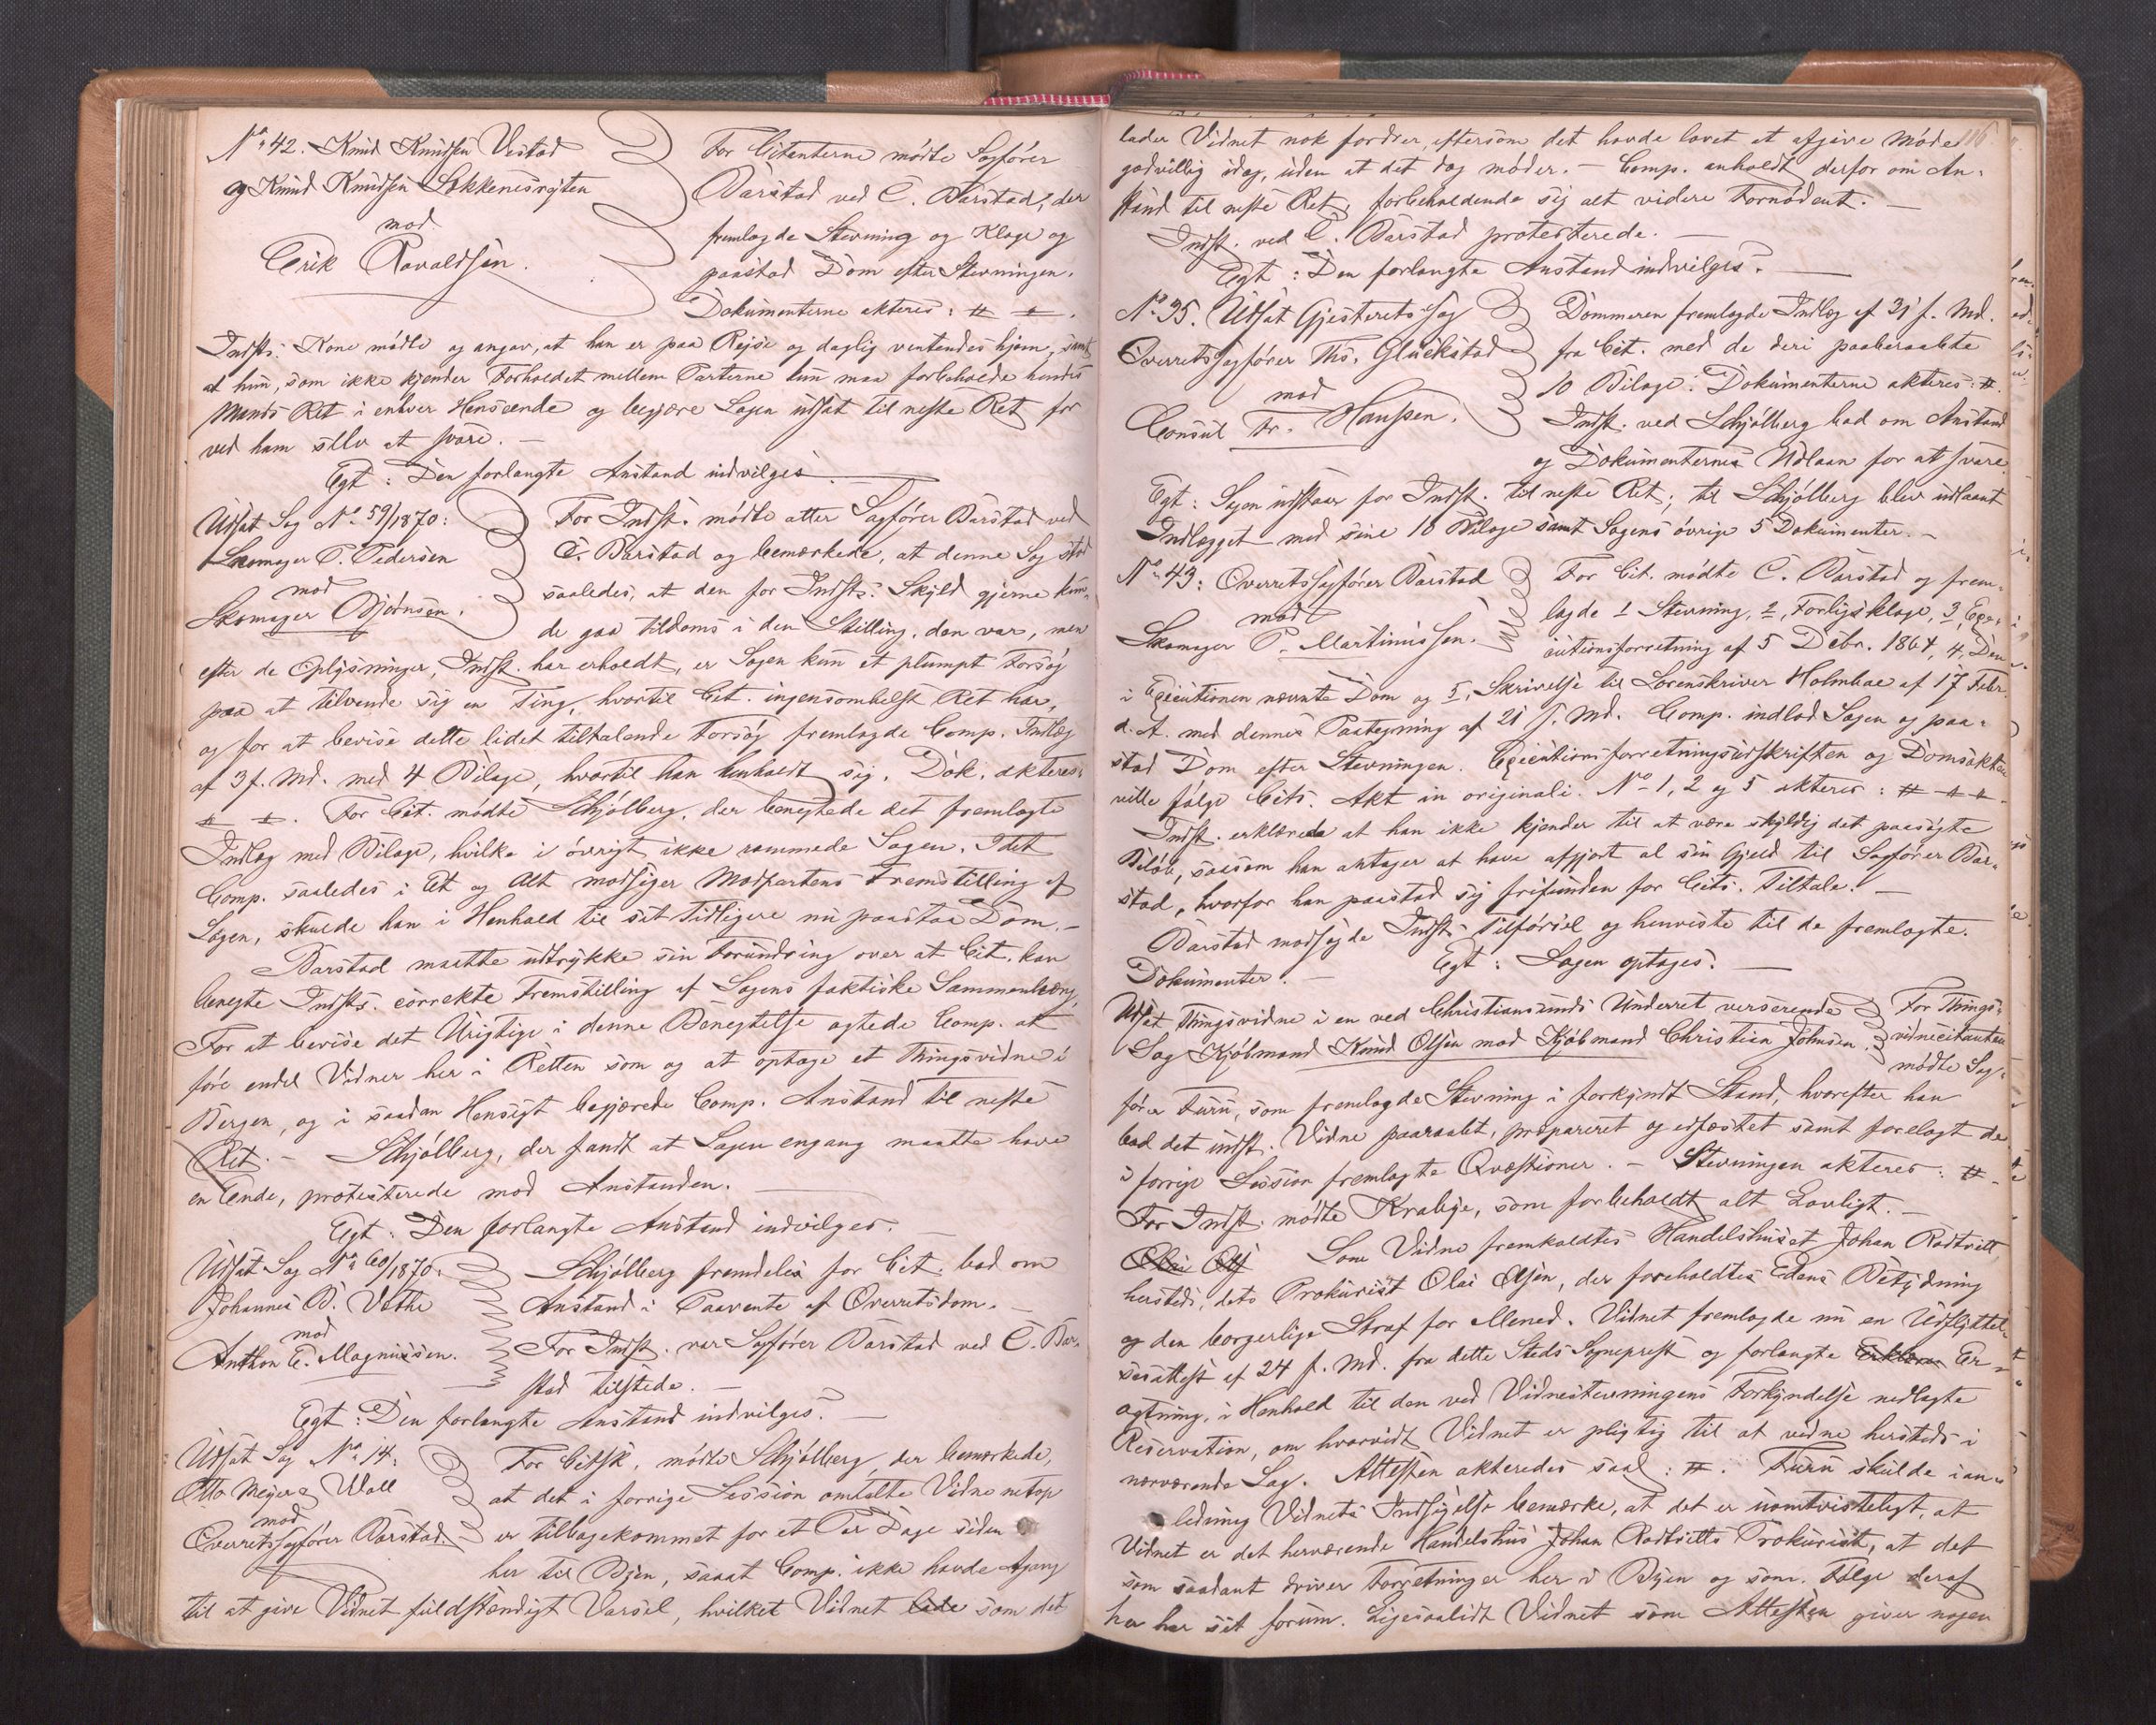 No 42. Knud Knudsen Vestad
og Knud Knudsen Løkkenesrøten
mod
Erik Ravaldsen.
For Citanterne mødte Sagfører
Barstad ved C. Barstad, der
fremlagde Stevning og Klage og
paastod Dom efter Stevningen.
Dokumenterne akteres: # #.
Indsts. Kone mødte og angav, at han er paa Rejse og daglig ventendes hjem, samt
at hun, som ikke kjender Forholdet mellem Parterne kun maa forbeholde hendes
Mands Ret i enhver Henseende og begjære Sagen udsat til neste Ret for
ved ham selv at svare. —
Egt: Den forlangte Anstand indvilges. —
Udsat Sag No 59/1870:
Skomager P. Pedersen
mod
Skomager Bjørnsen.
For Indst. mødte atter Sagfører Barstad ved
C. Barstad og bemærkede, at denne Sag stod
saaledes, at den for Indsts. Skyld gjerne kun-
de gaa tildoms i den Stilling, den var, men
efter de Oplysninger, Indst. har erholdt, er Sagen kun et plumpt Forsøg
paa at tilvende sig en Ting, hvortil Cit. ingensomhelst Ret har,
og for at bevise dette lidet tiltalende Forsøg fremlagde Comp. Indlæg
af 3 f. Md. med 4 Bilage, hvortil han henholdt sig. Dok. akteres:
# #. For Cit. mødte Schjølberg, der benegtede det fremlagte
Indlæg med Bilage, hvilke i øvrigt ikke rammede Sagen. Idet
Comp. saaledes i Et og Alt modsiger Modpartens Fremstilling af
Sagen, skulde han i Henhold til sit Tidligere nu paastaa Dom. —
Barstad maatte udtrykke sin Forundring over at Cit. kan
benegte Indsts. correkte Fremstilling af Sagens faktiske Sammenhæng.
For at bevise det Urigtige i denne Benegtelse agtede Comp. at
føre endel Vidner her i Retten som og at optage et Thingsvidne i
Bergen, og i saadan Hensigt begjærede Comp. Anstand til neste
Ret. — Schjølberg, der fandt at Sagen engang maatte have
en Ende, protesterede mod Anstanden. —
Egt: Den forlangte Anstand indvilges. —
Udsat Sag No 60/1870:
Johannes B. Vathe
mod
Anthon E. Magnussen.
Schjølberg fremdeles for Cit. bad om
Anstand i Paavente af Overretsdom. —
For Indst. var Sagfører Barstad ved C. Bar-
stad tilstede. —
Egt: Den forlangte Anstand indvilges. —
Udsat Sag No 14:
Otto Meyer Wall
mod
Overretssagfører Barstad.
For Citsk. mødte Schjølberg, der bemærkede,
at det i forrige Session omtalte Vidne netop
er tilbagekommet for et Par Dage siden
her til Byen, saaat Comp. ikke havde Agang
til at give Vidnet fuldstændigt Varsel, hvilket Vidnet som det
116
lader Vidnet nok fordrer, eftersom det havde lovet at afgive Møde
godvillig idag, uden at det dog møder. — Comp. anholdt derfor om An-
stand til neste Ret, forbeholdende sig alt videre Fornødent. —
Indst. ved C. Barstad protesterede. —
Egt: Den forlangte Anstand indvilges. —
No 35. Udsat Gjesterets Sag
Overretssagfører Ths. Gluckstad
mod
Consul Fr. Hanssen.
Dommeren fremlagde Indlæg af 31 f. Md.
fra Cit. med de deri paaberaabte
10 Bilage. Dokumenterne akteres: #
Indst. ved Schjølberg bad om Anstand
og Dokumenternes Udlaan for at svare.
Egt: Sagen udstaar for Indst. til neste Ret; til Schjølberg blev udlaant
Indlægget med sine 10 Bilage samt Sagens øvrige 5 Dokumenter. —
No 43: Overretssagfører Barstad
mod
Skomager P. Martinussen.
For Cit. mødte C. Barstad og frem-
lagde 1 Stevning, 2, Forligsklage, 3, Exe-
cutionsforretning af 5 Debr. 1864, 4, Den
i Executionen nævnte Dom og 5, Skrivelse til Sorenskriver Holmboe af 17 Febr.
d. A. med dennes Paategning af 21 s. Md. Comp. indlod Sagen og paa-
stod Dom efter Stevningen. Executionsforretningsudskriften og Domsakten
ville følge Cits. Akt in originali. No 1, 2 og 5 akteres: # # #
Indst. erklærede at han ikke kjender til at være skyldig det paasøgte
Beløb, saasom han antager at have afgjort al sin Gjeld til Sagfører Bar-
stad, hvorfor han paastod sig frifunden for Cits. Tiltale. —
Barstad modsagde Indsts. Tilførsel og henviste til de fremlagte
Dokumenter. — Egt: Sagen optages. —
Udsat Thingsvidne i en ved Christianssunds Underret verserende
Sag Kjøbmand Knud Olsen mod Kjøbmand Christian Johnsen.
For Things-
vidnecitanten
mødte Sag-
fører Furu, som fremlagde Stevning i forkyndt Stand, hvorefter han
bad det indst. Vidne paaraabt, præpareret og edfæstet samt forelagt de
i forrige Session fremlagte Qvæstioner. — Stevningen akteres: # —
For Indst. mødte Krabye, som forbeholdt alt Lovligt. —
Olai Ols Som Vidne fremkaldtes Handelshuset Johan Rodtvitt
hersteds, dets Prokurist Olai Olsen, der foreholdtes Edens Betydning
og den borgerlige Straf for Mened. Vidnet fremlagde nu en Udflyttel-
sesattest af 24 f. Md. fra dette Steds Sogneprest og forlangte Erklære Er-
agtning, i Henhold til den ved Vidnestevningens Forkyndelse nedlagte
Reservation, om hvorvidt Vidnet er pligtig til at vidne hersteds i
nærværende Sag. Attesten akteredes saal: #. Furu skulde i an-
ledning Vidnets Indsigelse bemærke, at det er uomtvisteligt, at
Vidnet er det herværende Handelshus Johan Rodtvitts Prokurist, at det
som saadant driver Forretninger her i Byen og som Følge deraf
har sit forum. Ligesaalidt Vidnet som Attesten giver nogen